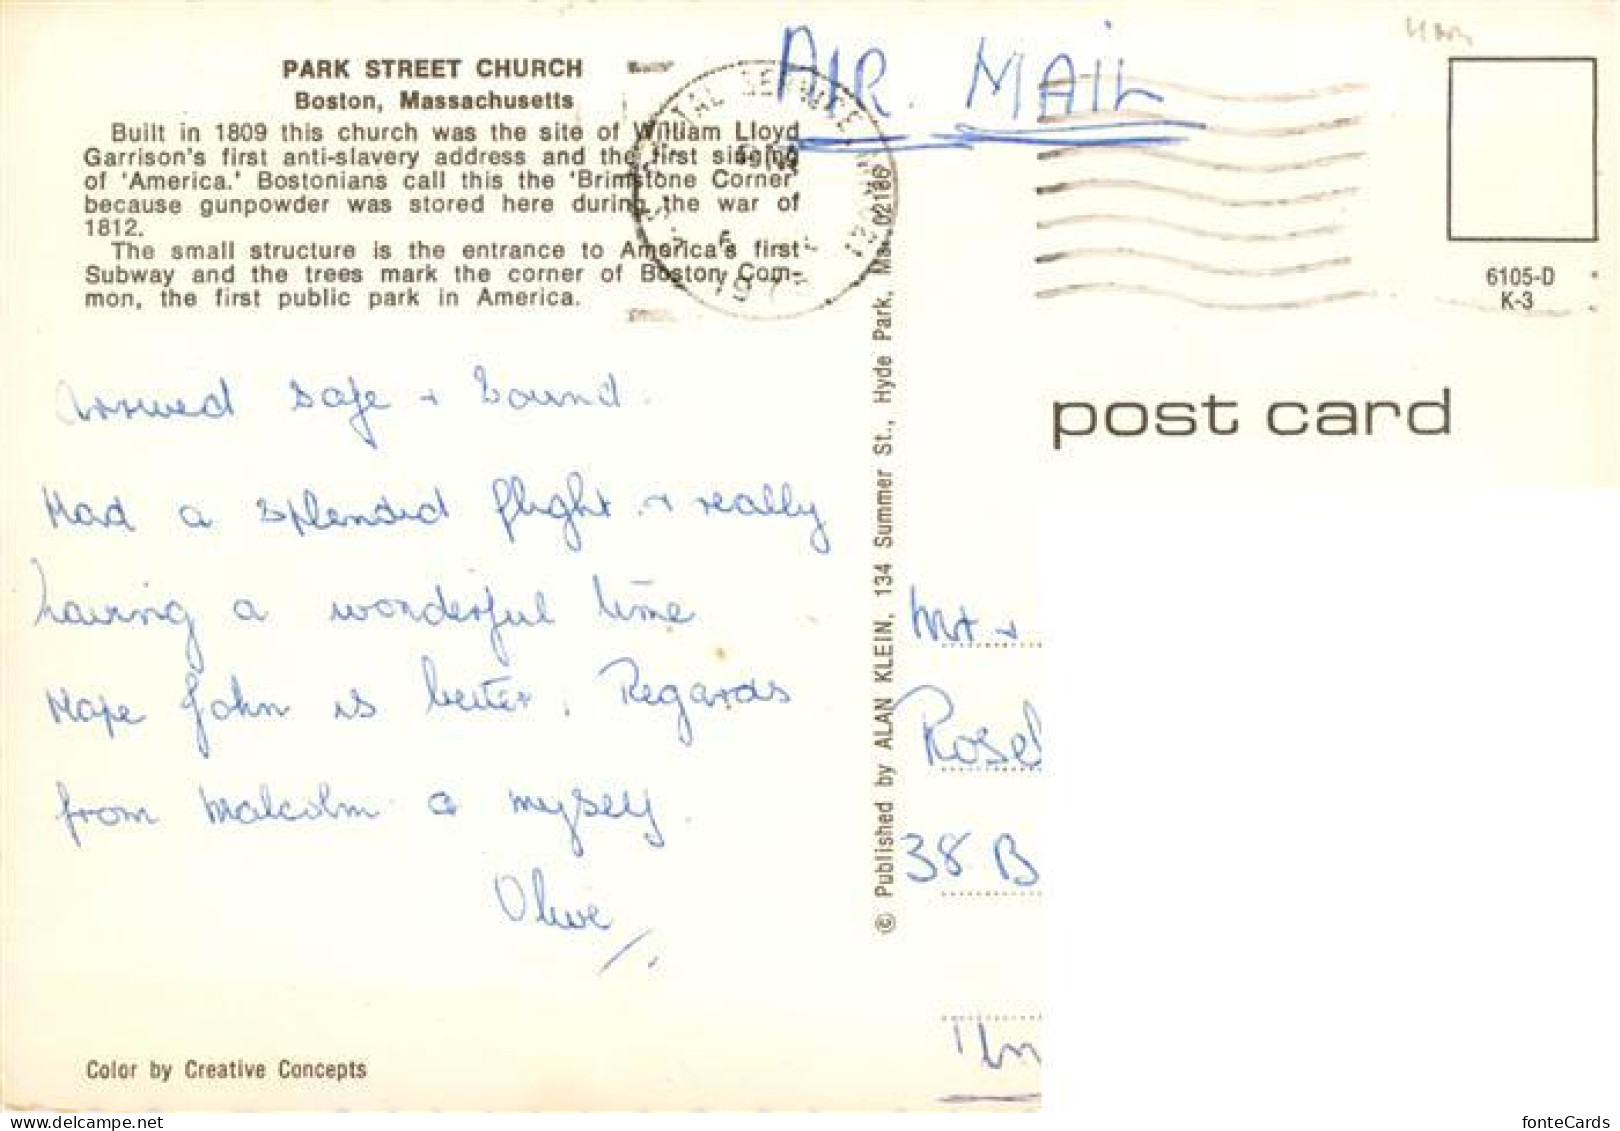 PARK STREET CHURCH
Boston, Massachusetts
Built in 1809 this church was the site of William Lloyd
Garrison's first anti-slavery address and the first singing
of 'America.' Bostonians call this the 'Brimstone Corner'
because gunpowder was stored here during the war of
1812.
The small structure is the entrance to America's first
Subway and the trees mark the corner of Boston Com-
mon, the first public park in America.
AIR MAIL
6105-D
K-3
post card
Arrived safe + Sound.
Had a splendid flight + really
having a wonderful time
Hope John is better. Regards
from Malcolm & myself.
Olive
© Published by ALAN KLEIN, 134 Summer St., Hyde Park, Ma. 02136
Mr +
Rosel
38 B
Color by Creative Concepts
fonteCards